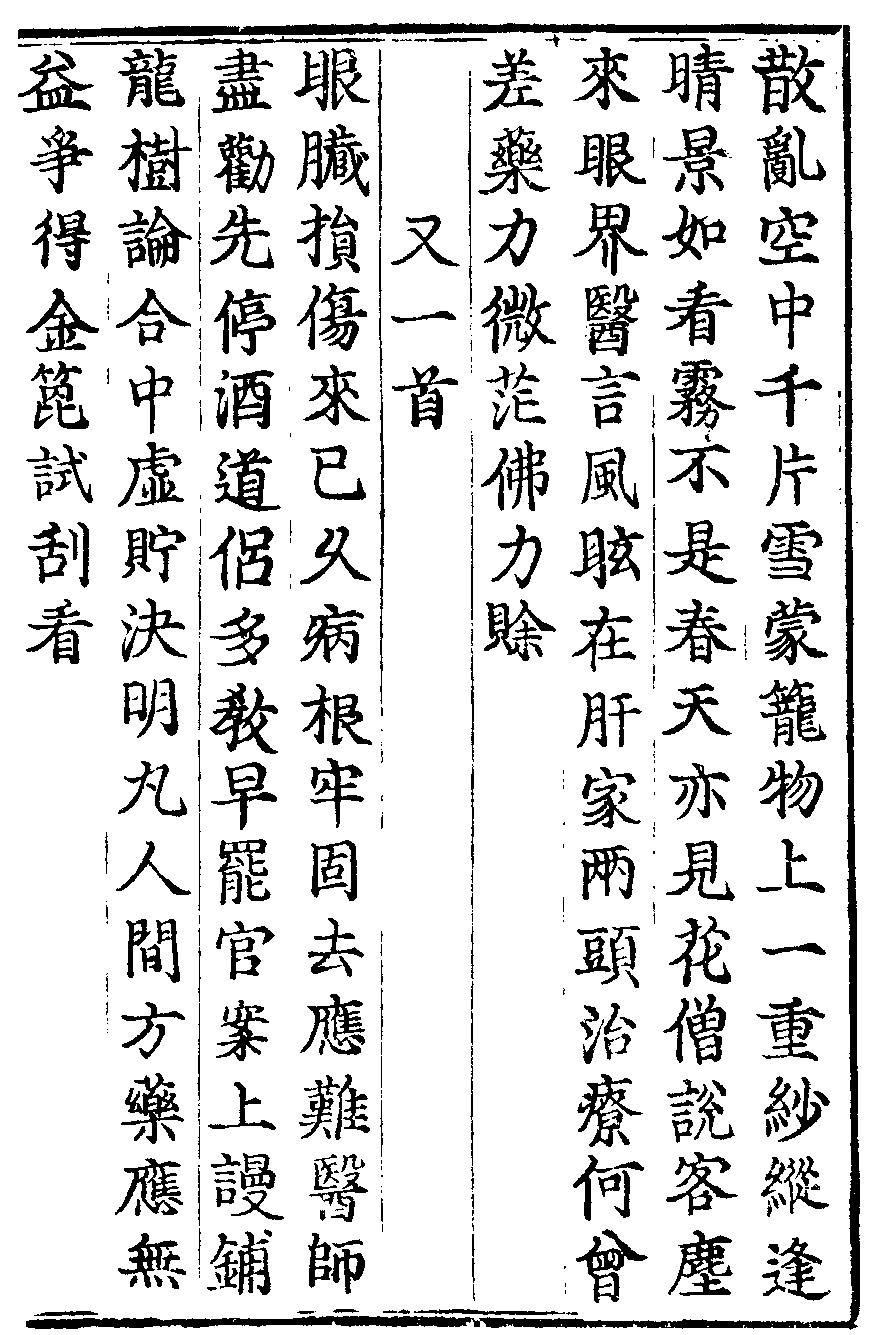 散亂空中千片雪蒙籠物上一重紗縱逢
晴景如看霧不是春天亦見花僧說客塵
來眼界醫言風眩在肝家兩頭治療何曾
差藥力微茫佛力賒
又一首
眼臟損傷來已久病根牢固去應難醫師
盡勸先停酒道侶多教早罷官案上謾鋪
龍樹論合中虛貯決明丸人間方藥應無
益爭得金篦試刮看